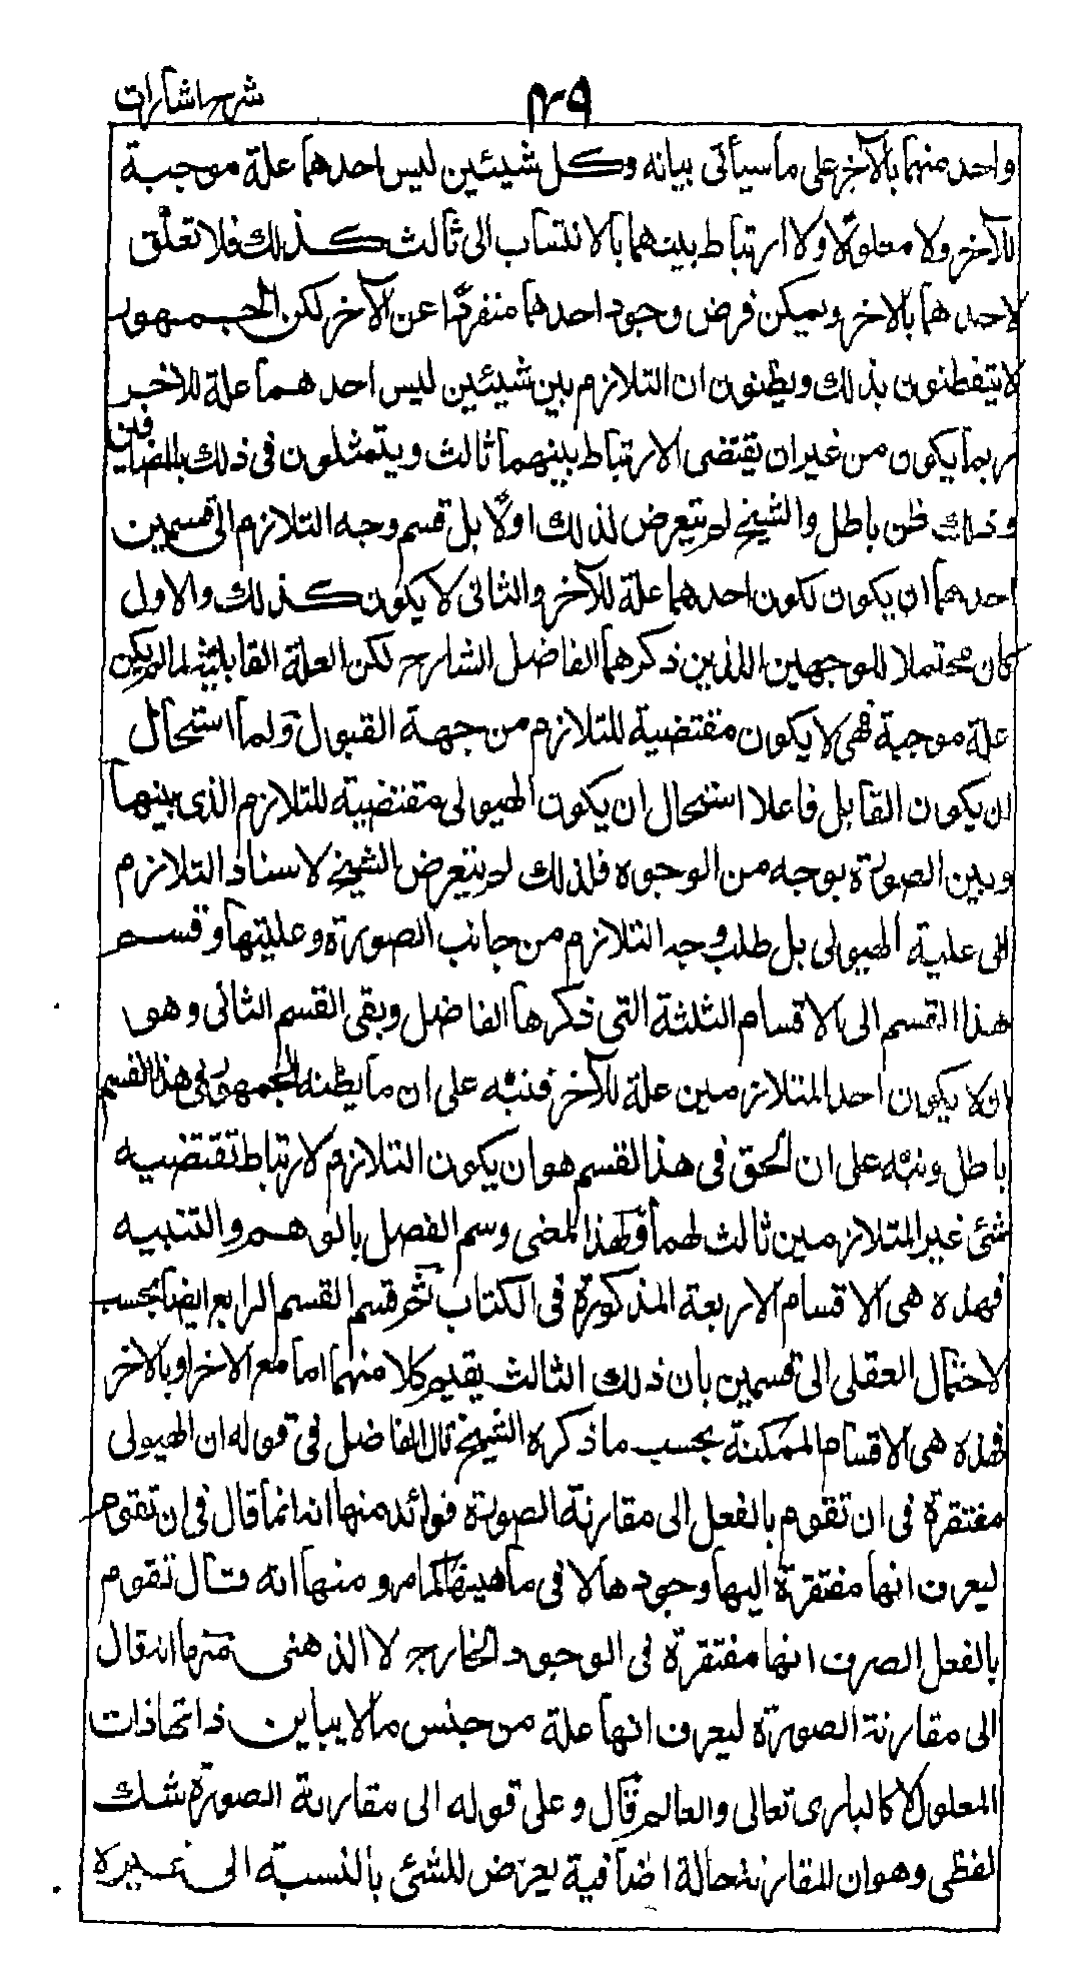 شرح اشارات
واحد منهما بالآخر على ما سيأتى بيانه وكل شيئين ليس احدهما علة موجبة
للآخر ولا معلولًا ولا ارتباط بينهما بالانتساب الى ثالث كذلك فلا تعلّق
لاحدهما بالاخر ويمكن فرض وجود احدهما منفردًا عن الآخر لكن الجمهور
لا يتفطنون بذلك ويظنون ان التلازم بين شيئين ليس احدهما علة للاخر
ربما يكون من غير ان يقتضى الارتباط بينهما ثالث ويتمثلون فى ذلك بالمضايفين
وذلك ظن باطل والشيخ لم يتعرض لذلك اولًا بل قسم وجه التلازم الى قسمين
احدهما ان يكون لكون احدهما علة للآخر والثانى لا يكون كذلك والاول
كان محتملا للوجهين اللذين ذكرهما الفاضل الشارح لكن العلة القابلية لما لم يكن
علة موجبة فهى لا يكون مقتضية للتلازم من جهة القبول ولما استحال
ان يكون القابل فاعلا استحال ان يكون الهيولى مقتضية للتلازم الذى بينها
وبين الصورة بوجه من الوجوه فلذلك لم يتعرض الشيخ لاسناد التلازم
الى علية الهيولى بل طلب وجه التلازم من جانب الصورة وعليتها وقسم
هذا القسم الى الاقسام الثلثة التى ذكرها الفاضل وبقى القسم الثانى وهو
ان لا يكون احد المتلازمين علة للآخر فنبّه على ان ما يظنه الجمهور فى هذا القسم
باطل ونبّه على ان الحق فى هذا القسم هو ان يكون التلازم لارتباط تقتضيه
شئ غير المتلازمين ثالث لهما ولهذا المعنى وسم الفصل بالوهم والتنبيه
فهذه هى الاقسام الاربعة المذكورة فى الكتاب ثم قسم القسم الرابع ايضا بحسب
الاحتمال العقلى الى قسمين بان ذلك الثالث يقيم كلا منهما اما مع الاخر او بالاخر
فهذه هى الاقسام الممكنة بحسب ما ذكره الشيخ قال الفاضل فى قوله ان الهيولى
مفتقرة فى ان تقوم بالفعل الى مقارنة الصورة فوائد منها انه انما قال فى ان تقوم
ليعرف انها مفتقرة اليها وجودها لا فى ماهيتها كما مر ومنها انه قال تقوم
بالفعل الصرف انها مفتقرة فى الوجود الخارج لا الذهنى منها انه قال
الى مقارنة الصورة ليعرف انها علة من جنس ما لا يباين ذاتها ذات
المعلول لا كالبارى تعالى والعالم قال وعلى قوله الى مقارنة الصورة شك
لفظى وهو ان المقارنة حالة اضافية يعرض للشئ بالنسبة الى غيره